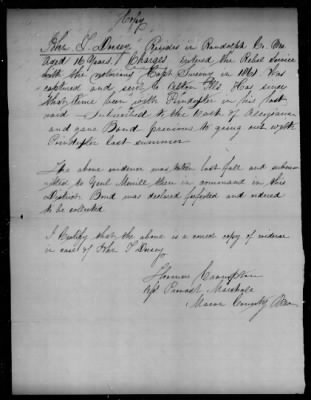 Copy
John T Dorsey Resides in Randolph Co. Mo.
Aged 16 Years, Charges entered the Rebel Service
with the notorious Capt Sweeny in 1861. Was
captured and sent to Alton Ills. Has since
that time been with Poindexter in his last
raid – Submitted to the Oath of Allegiance
and gave Bond previous to going out with
Poindexter last summer
The above evidence was taken last fall and submit
ted to Genl Merrill then in command in this
District. Bond was declared forfeited and ordered
to be collected
I Certify that the above is a correct copy of evidence
in case of John T Dorsey
Thomas
Provost Marshal
Macon County Mo